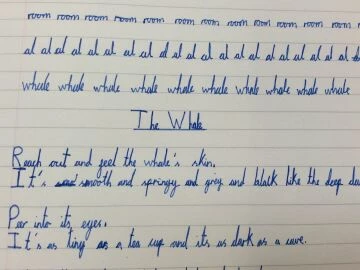 room room room room room room room room room room room room
al al al al al al al al al al al al al al al al al al
whale whale whale whale whale whale whale whale whale
The Whale
Reach out and feel the whale's skin.
It's smooth and springy and grey and black like the deep
Peer into its eyes.
It's as tiny as a tea cup and its as dark as a cave.